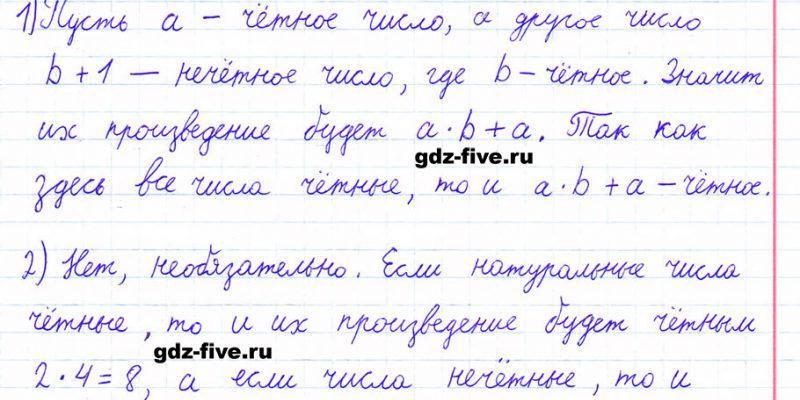 1) Пусть a – чётное число, а другое число
b + 1 — нечётное число, где b – чётное. Значит
их произведение будет a · b + a. Так как
gdz-five.ru
здесь все числа чётные, то и a · b + a – чётное.
2) Нет, необязательно. Если натуральные числа
чётные, то и их произведение будет чётным
gdz-five.ru
2 · 4 = 8, а если числа нечётные, то и